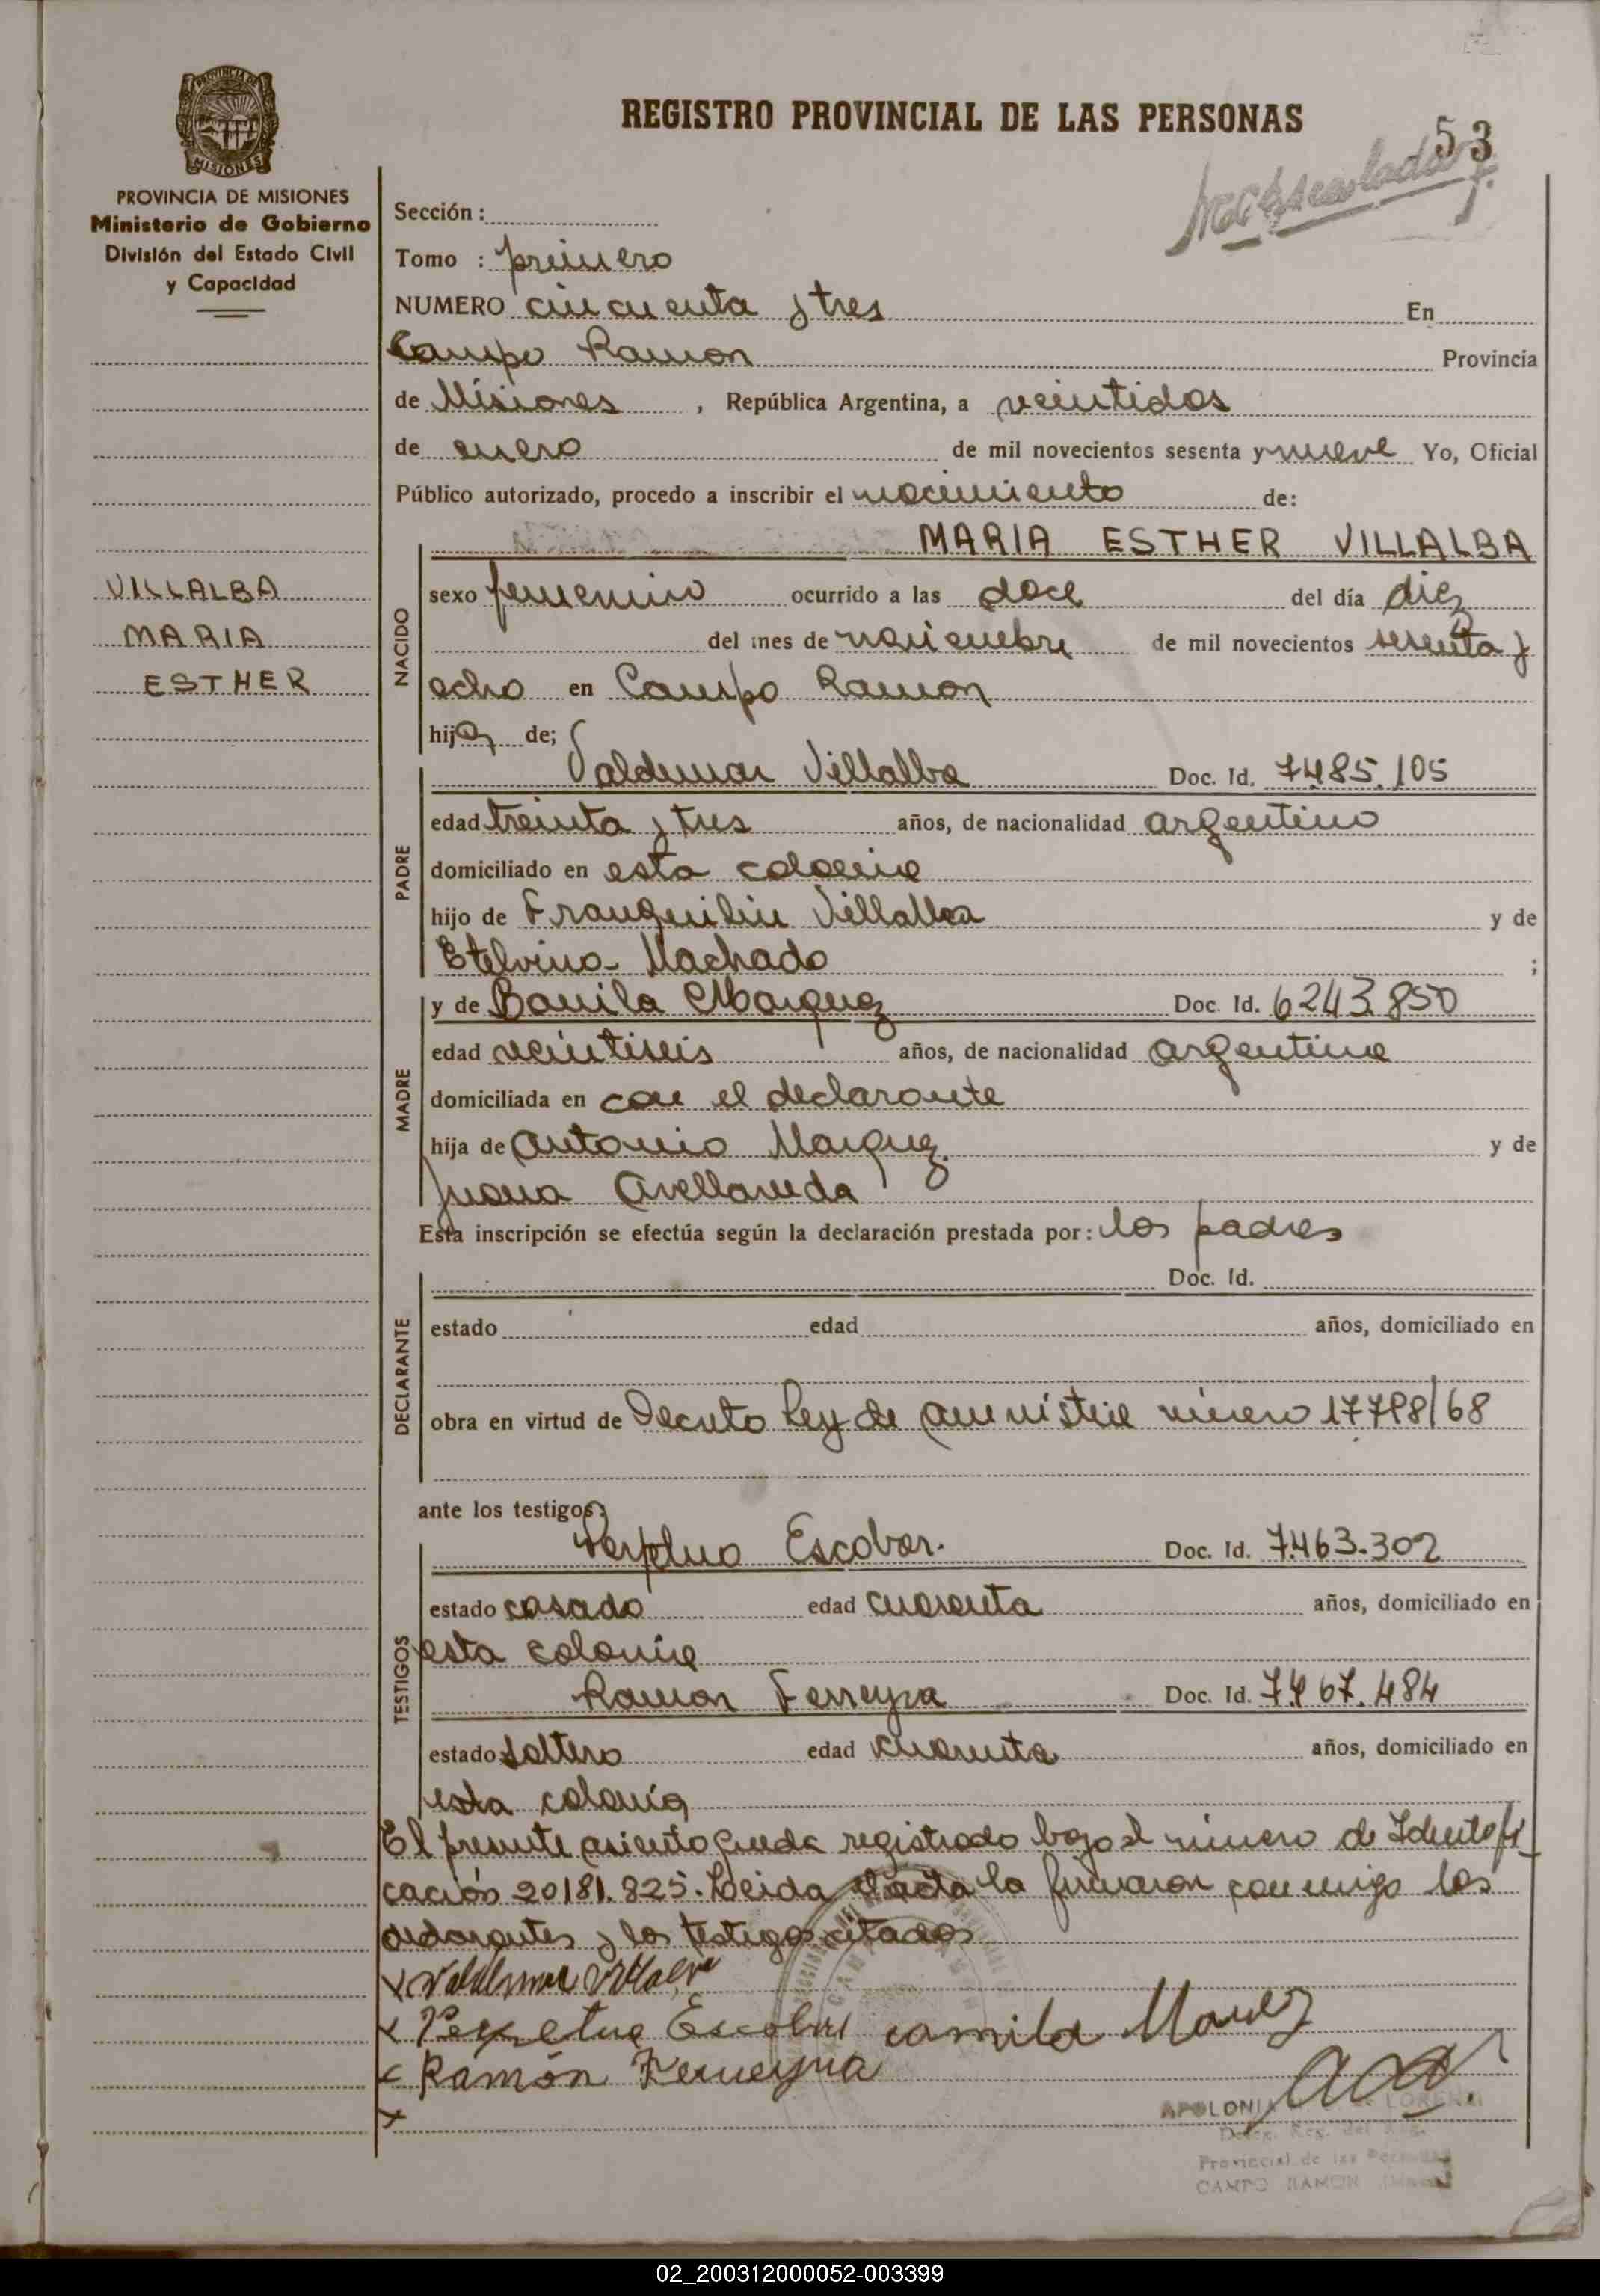 REGISTRO PROVINCIAL DE LAS PERSONAS
53
PROVINCIA DE MISIONES
Ministerio de Gobierno
División del Estado Civil
y Capacidad
VILLALBA
MARIA
ESTHER
Sección :
Tomo : primero
NUMERO cincuenta y tres En
Campo Ramon Provincia
de Misiones , República Argentina, a veintidos
de enero de mil novecientos sesenta y nueve Yo, Oficial
Público autorizado, procedo a inscribir el nacimiento de:
MARIA ESTHER VILLALBA
NACIDO
sexo femenino ocurrido a las doce del día diez
del mes de noviembre de mil novecientos sesenta y
ocho en Campo Ramon
hija de;
PADRE
Valdemar Villalba Doc. Id. 7485.105
edad treinta y tres años, de nacionalidad argentino
domiciliado en esta colonia
hijo de Franquilin Villalba y de
Etelvina Machado ;
MADRE
y de Marquez Doc. Id. 6243850
edad veintiseis años, de nacionalidad argentina
domiciliada en con el declarante
hija de Antonio Marquez y de
Juana Avellaneda
Esta inscripción se efectúa según la declaración prestada por: los padres
DECLARANTE
Doc. Id.
estado edad años, domiciliado en
obra en virtud de Decreto Ley de amnistia número 17798/68
ante los testigos:
TESTIGOS
Perpetuo Escobar. Doc. Id. 7.463.302
estado casado edad cuarenta años, domiciliado en
esta colonia
Ramon Ferreyra Doc. Id. 7467.484
estado Soltero edad cuarenta años, domiciliado en
esta colonia
El presente asiento queda registrado bajo el número de Identifi
cación 20181.825. Leida el acta la firmaron conmigo los
declarantes y los testigos citados
x Valdemar Villalba
x Perpetuo Escobar camila
x Ramón Ferreyra
x
APOLONIA
Provincial de las Personas
CAMPO RAMON
02_200312000052-003399